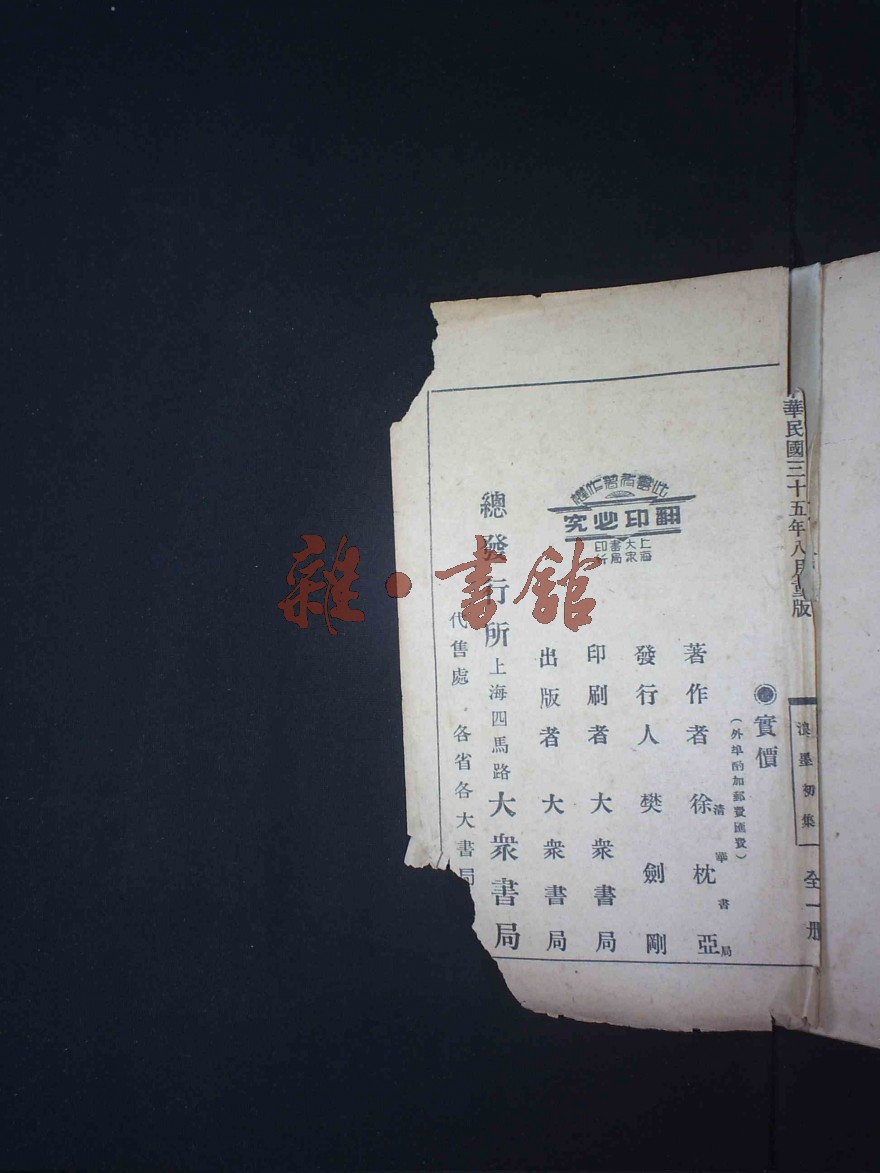 華民國三十五年八月重版
浪墨初集
全一册
實價
（外埠酌加郵費匯費）
著作者 徐枕亞
清華書局
發行人 樊劍剛
印刷者 大衆書局
出版者 大衆書局
總發行所 上海四馬路 大衆書局
代售處 各省各大書局
此書有著作權
翻印必究
上海
大衆
書局
印所
雜·書館